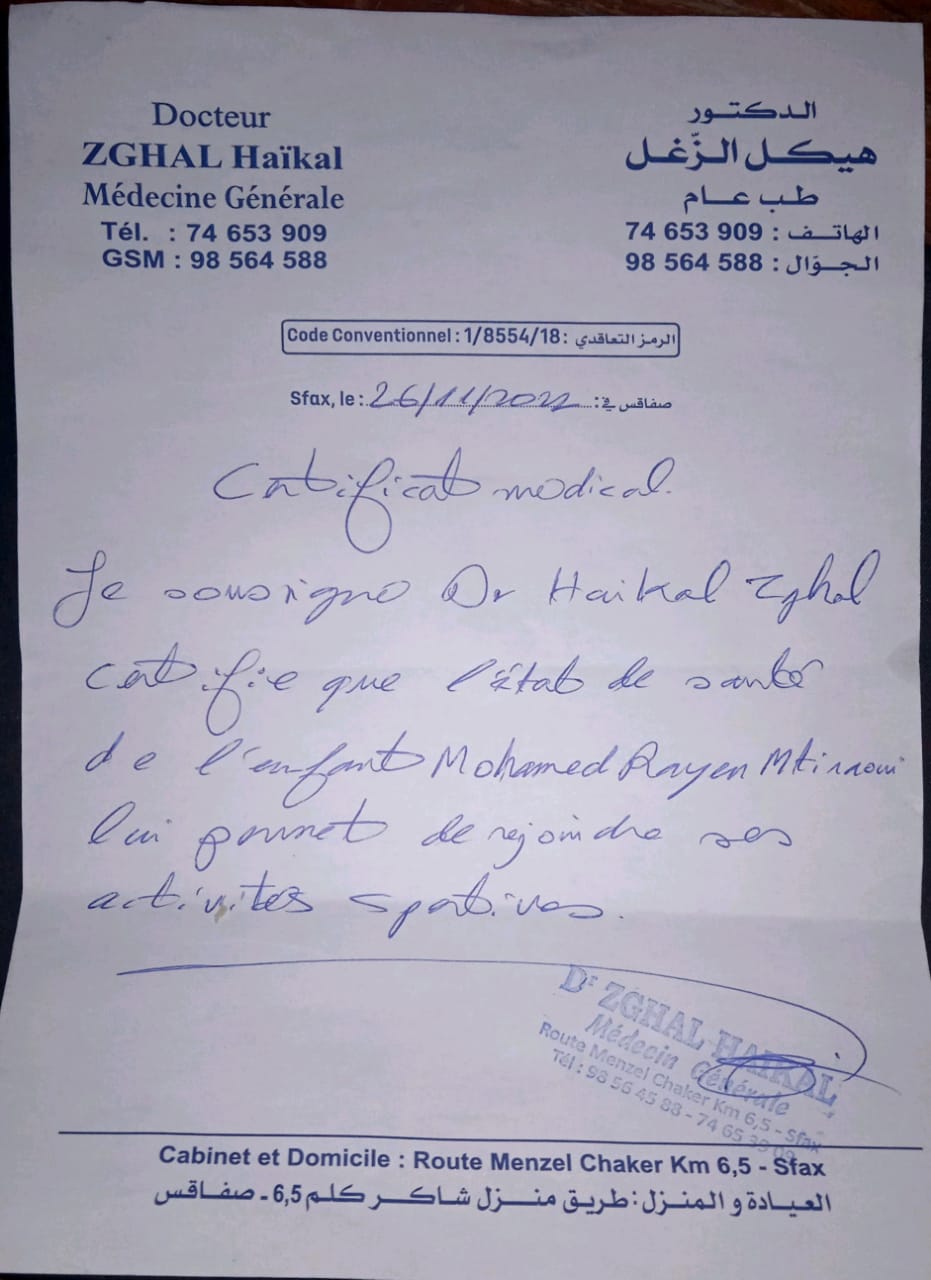 Docteur
ZGHAL Haïkal
Médecine Générale
Tél. : 74 653 909
GSM : 98 564 588
الدكتور
هيكل الزّغل
طب عام
الهاتف : 74 653 909
الجوّال : 98 564 588
Code Conventionnel : 1/8554/18 : الرمز التعاقدي
Sfax, le : 26/11/2022 صفاقس في :
Certificat medical.
Je soussigne Dr Haikal Zghal
certifie que l'état de santé
de l'enfant Mohamed Rayen Mtiraoui
lui permet de rejoindre ses
activités sportives.
Dr ZGHAL HAIKAL
Médecin Générale
Route Menzel Chaker Km 6,5 - Sfax
Tél : 98 56 45 88 - 74 65 39 09
Cabinet et Domicile : Route Menzel Chaker Km 6,5 - Sfax
العيادة و المنزل : طريق منزل شاكر كلم 6,5 - صفاقس